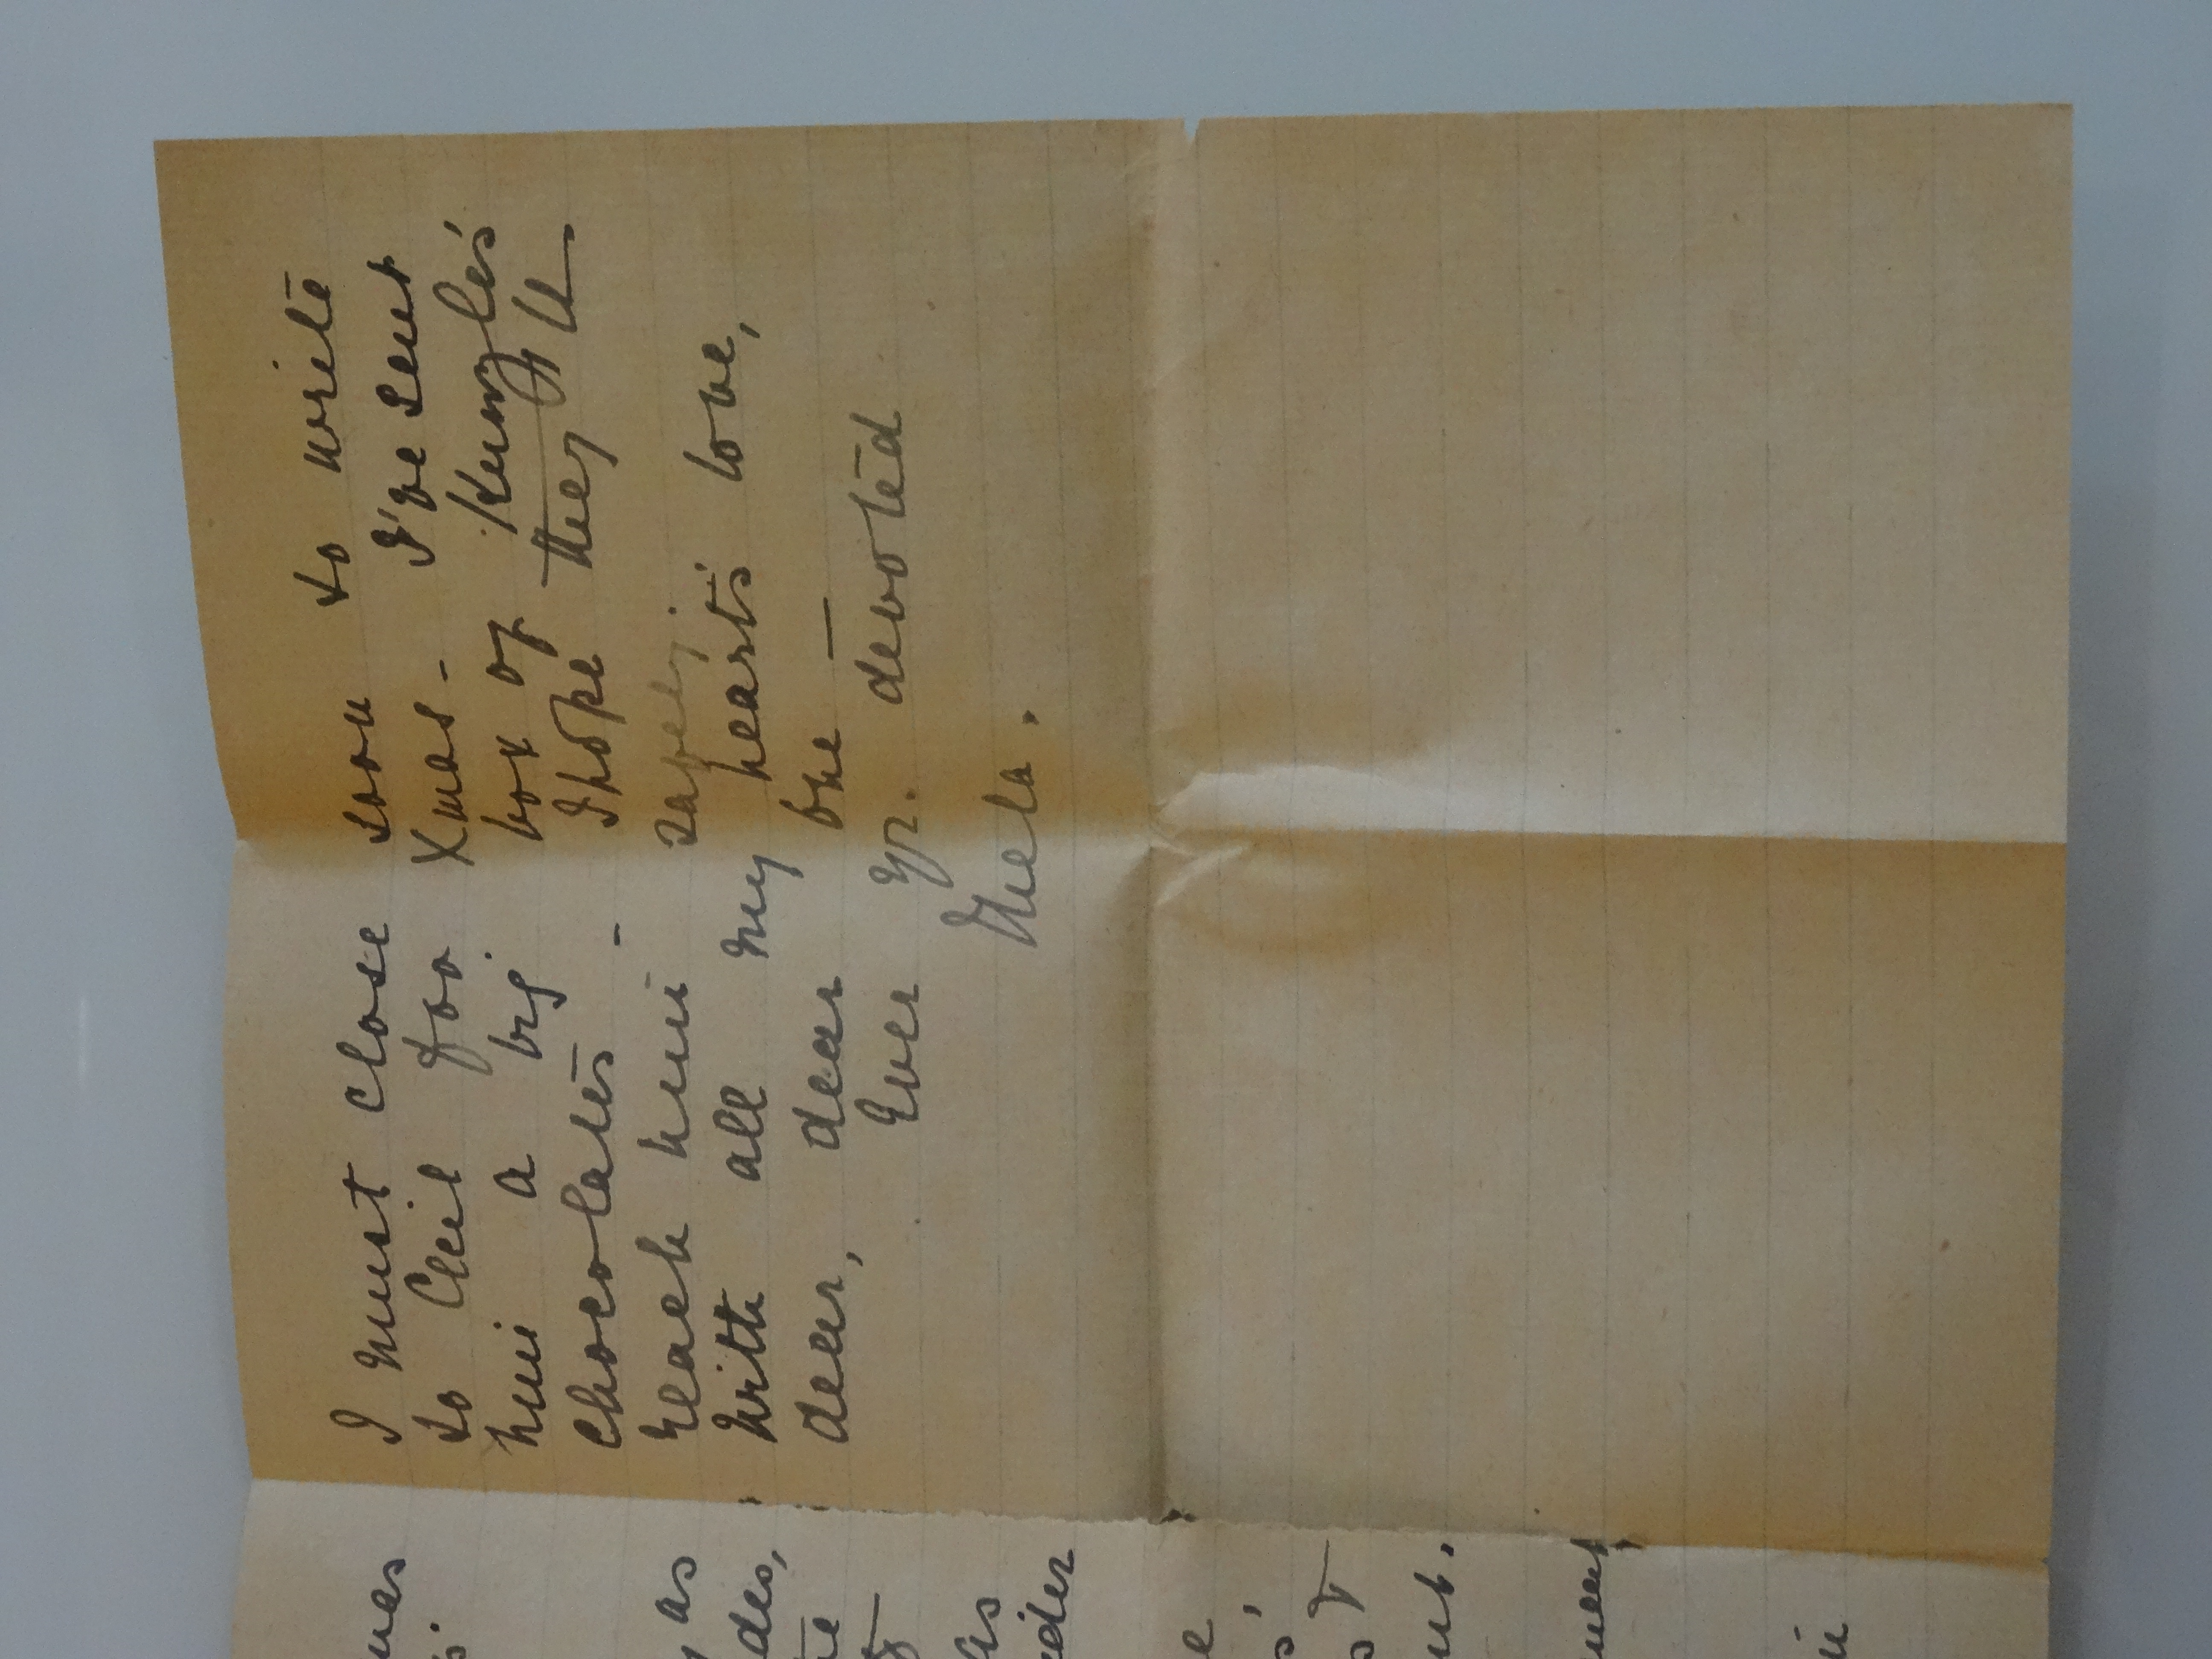 I must close soon to write
to Cecil for Xmas - I've sent
him a big box of Kunzle's
chocolates - I hope they'll
reach him safely.
With all my heart's love,
dear, dear one —
Ever yr. devoted
as